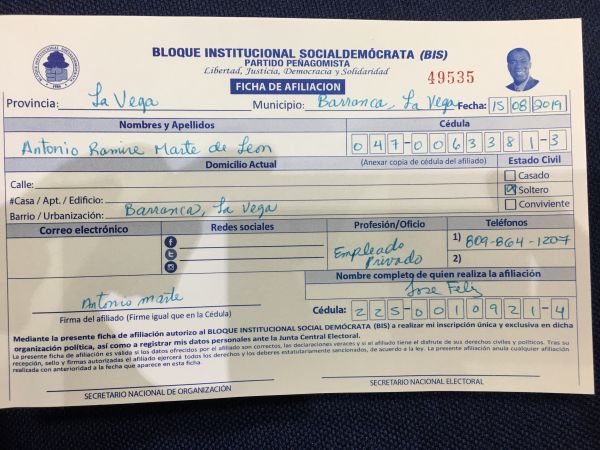 BLOQUE INSTITUCIONAL SOCIALDEMÓCRATA (BIS)
PARTIDO PEÑAGOMISTA
Libertad, Justicia, Democracia y Solidaridad
FICHA DE AFILIACION
49535
Provincia: La Vega Municipio: Barranca, La Vega Fecha: 15 08 2019
Nombres y Apellidos Cédula
Antonio Ramire Marte de Leon 047-0063381-3
Domicilio Actual (Anexar copia de cédula del afiliado) Estado Civil
Calle: Casado
#Casa / Apt. / Edificio: Soltero
Barrio / Urbanización: Barranca, La Vega Conviviente
Correo electrónico Redes sociales Profesión/Oficio Teléfonos
Empleado Privado 1) 809-864-1207
2)
Nombre completo de quien realiza la afiliación
Antonio Marte Jose Feliz
Firma del afiliado (Firme igual que en la Cédula) Cédula: 225-0010921-4
Mediante la presente ficha de afiliación autorizo al BLOQUE INSTITUCIONAL SOCIAL DEMÓCRATA (BIS) a realizar mi inscripción única y exclusiva en dicha
organización política, así como a registrar mis datos personales ante la Junta Central Electoral.
La presente ficha de afiliación es válida si los datos ofrecidos por el afiliado son correctos, las declaraciones veraces y si el afiliado tiene el disfrute de sus derechos civiles y políticos. Tras su
recepción, sello y firmas autorizadas el afiliado ejercerá todos los derechos y los deberes estatutariamente sancionados, de acuerdo a la ley. La presente afiliación anula cualquier afiliación
realizada con anterioridad a la fecha que aparece en esta ficha.
SECRETARIO NACIONAL DE ORGANIZACIÓN SECRETARIO NACIONAL ELECTORAL